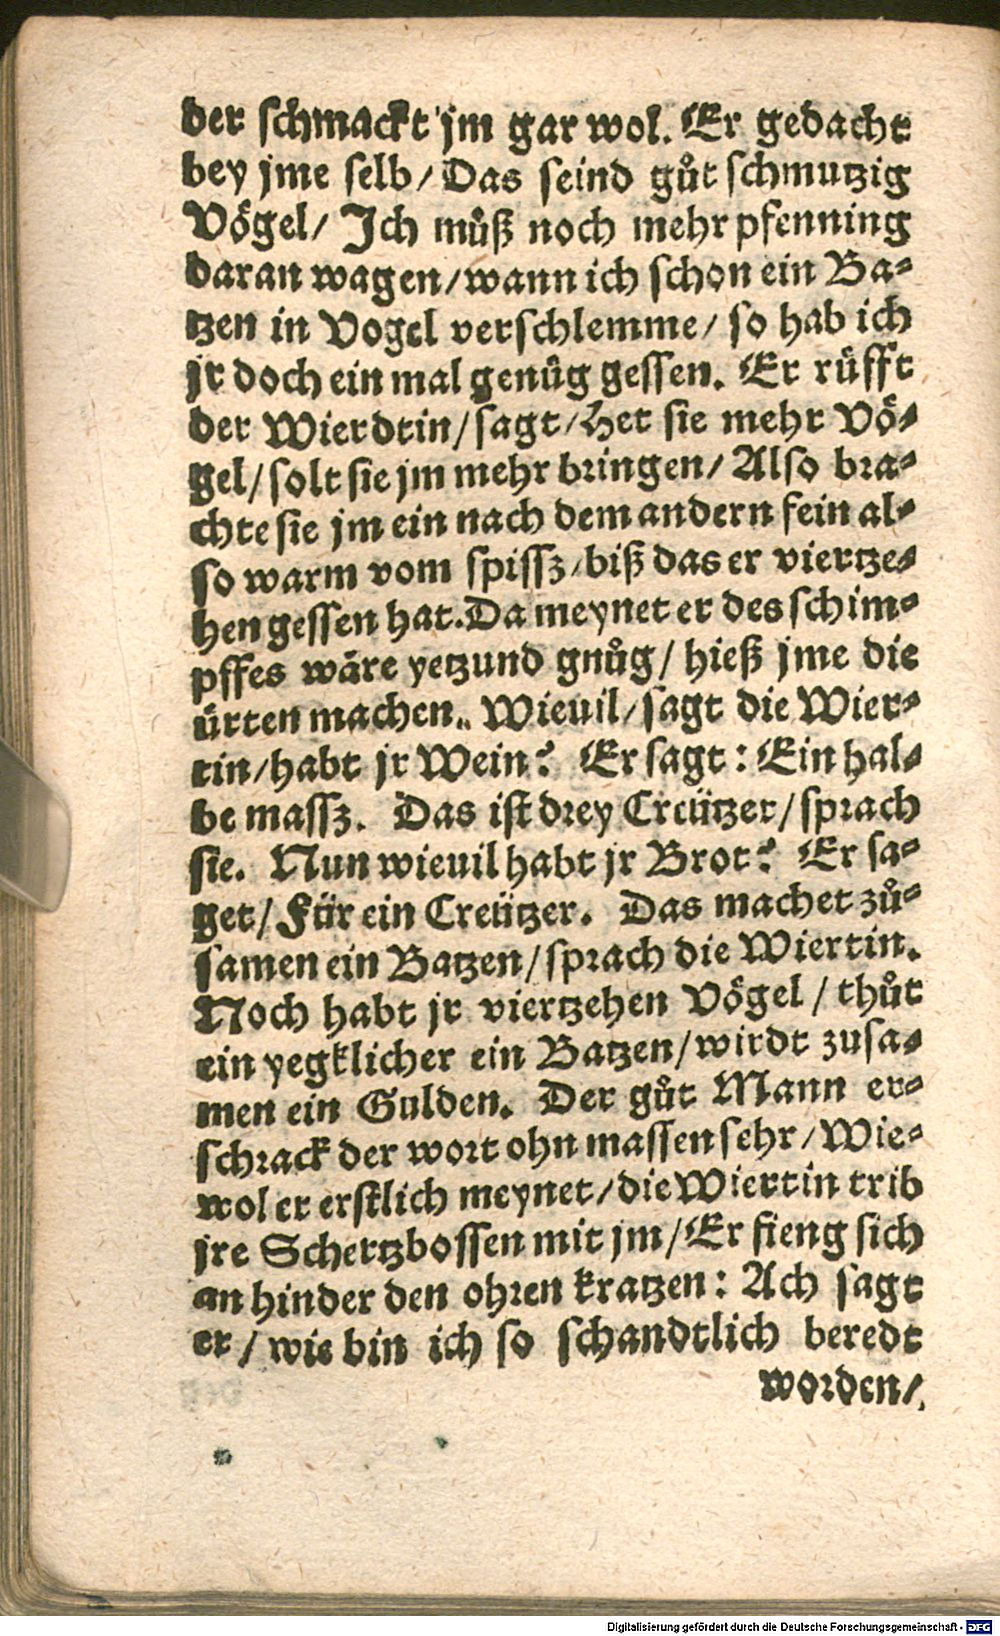 der schmackt jm gar wol. Er gedacht
bey jme selb/ Das seind gůt schmutzig
Vögel/ Jch můß noch mehr pfenning
daran wagen/ wann ich schon ein Ba⸗
tzen in Vogel verschlemme/ so hab ich
jr doch ein mal genůg gessen. Er růfft
der Wierdtin/ sagt/ Het sie mehr Vö⸗
gel/ solt sie jm mehr bringen/ Also bra⸗
chte sie jm ein nach dem andern fein al⸗
so warm vom spissz/ biß das er viertze⸗
hen gessen hat. Da meynet er des schim⸗
pffes wäre yetzund gnůg/ hieß jme die
ürten machen. Wieuil/ sagt die Wier⸗
tin/ habt jr Wein? Er sagt: Ein hal⸗
be massz. Das ist drey Creützer/ sprach
sie. Nun wieuil habt jr Brot? Er sa⸗
get/ Für ein Creützer. Das machet zů⸗
samen ein Batzen/ sprach die Wiertin.
Noch habt jr viertzehen Vögel/ thůt
ein yegklicher ein Batzen/ wirdt zusa⸗
men ein Gulden. Der gůt Mann er⸗
schrack der wort ohn massen sehr/ Wie⸗
wol er erstlich meynet/ die Wiertin trib
jre Schertzbossen mit jm/ Er fieng sich
an hinder den ohren kratzen: Ach sagt
er/ wie bin ich so schandtlich beredt
worden/
Digitalisierung gefördert durch die Deutsche Forschungsgemeinschaft - DFG